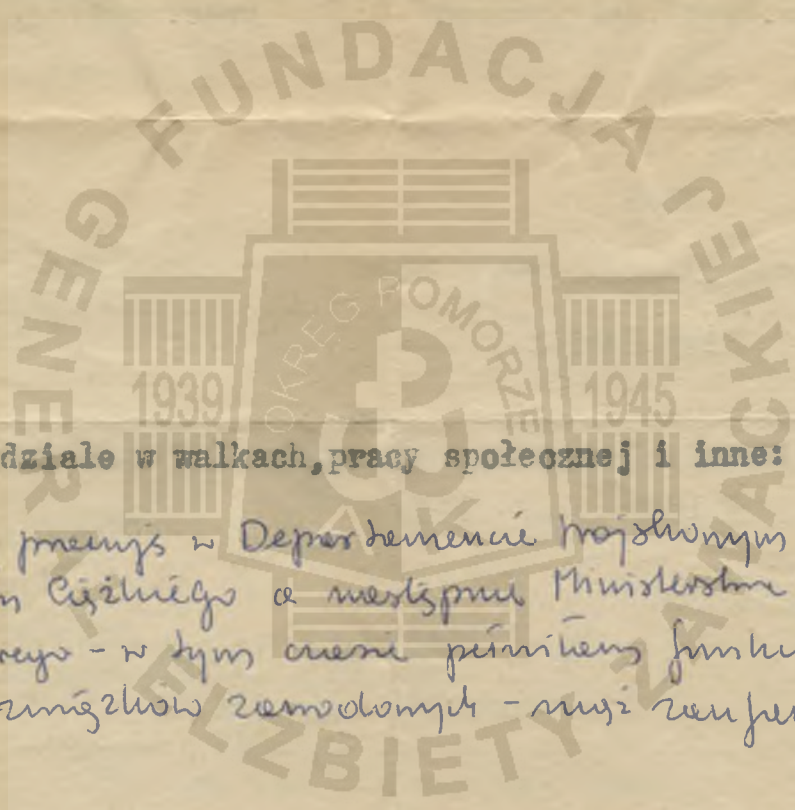 FUNDACJA
GENERAŁ ELŻBIETY ZAWACKIEJ
OKRĘG POMORZE
1939 1945
AK
dziale w walkach,pracy społecznej i inne:
w Departamencie Wojskowym
Ciężkiego a następnie Ministerstwa
- w tym czasie pełniłam
związków zawodowych - mąż